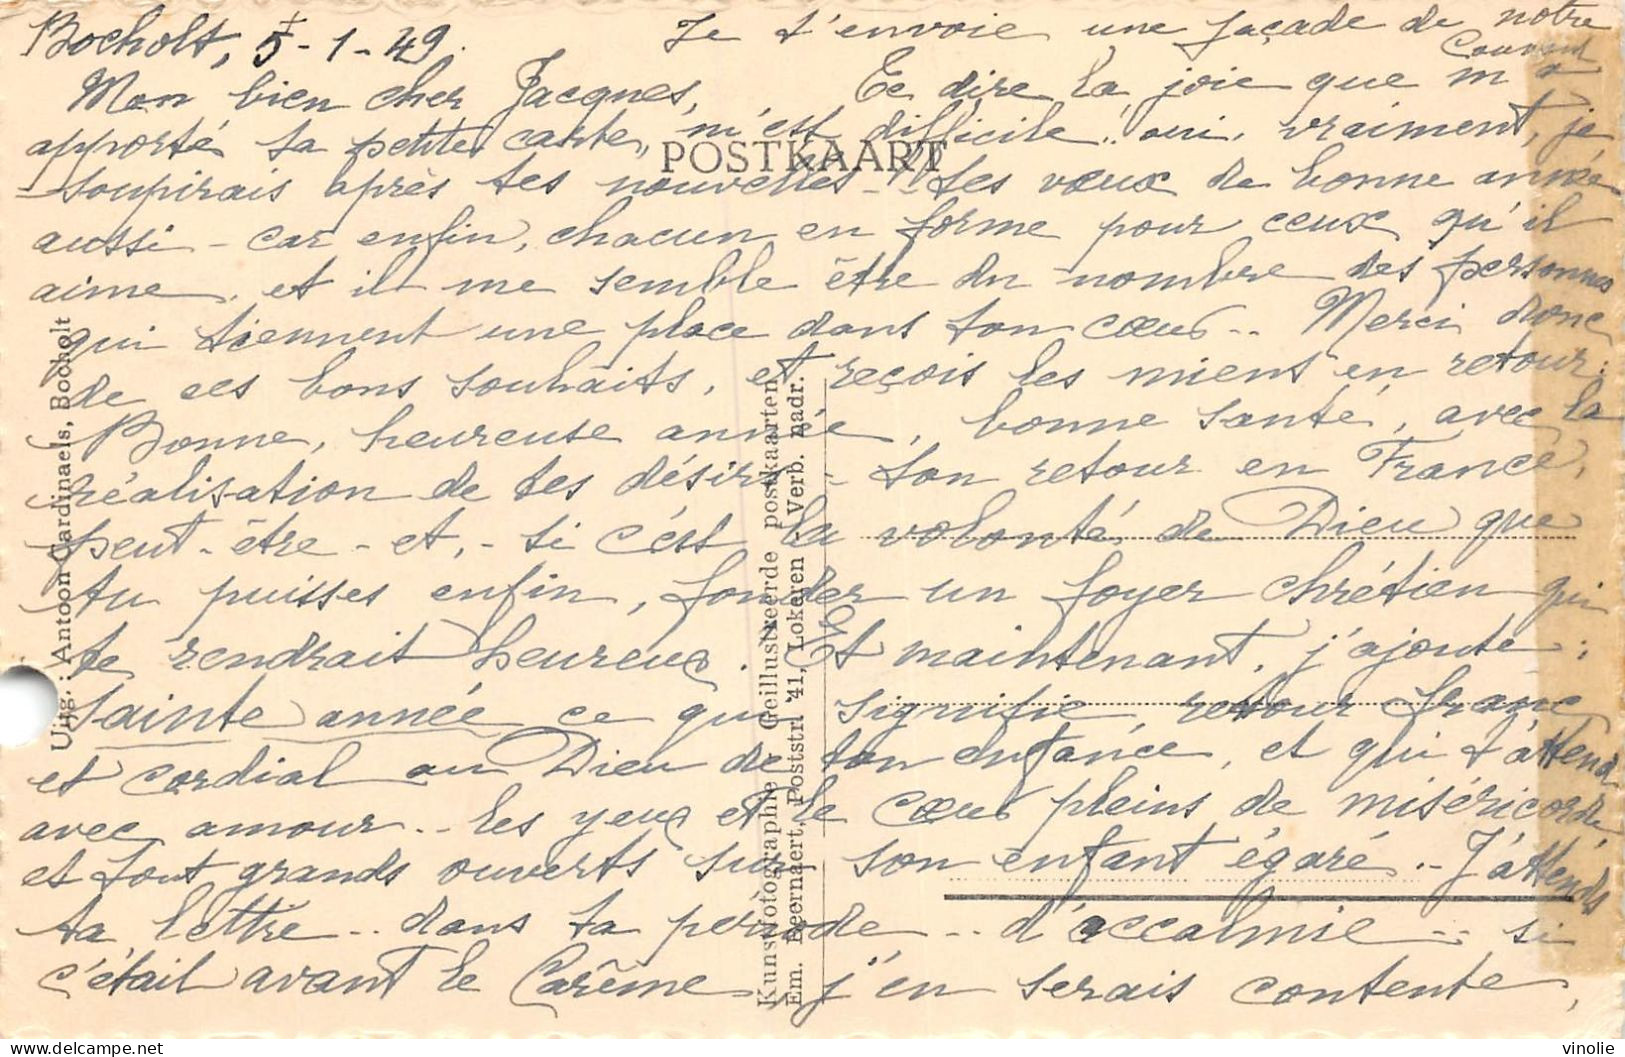 Bocholt, 5-1-49. Je t'envoie une façade de notre
Couvent
Mon bien cher Jacques, Te dire la joie que m'a
apporté ta petite carte, m'est difficile! oui, vraiment, je
POSTKAART
soupirais après tes nouvelles - Tes vœux de bonne année
aussi - car enfin, chacun en forme pour ceux qu'il
aime, et il me semble être du nombre des personnes
qui tiennent une place dans ton cœur.. Merci donc
de ces bons souhaits, et reçois les miens en retour:
Bonne, heureuse année, bonne santé, avec la
réalisation de tes désirs - ton retour en France,
peut-être - et, - si c'est la volonté de Dieu que
tu puisses enfin, fonder un foyer chrétien qui
te rendrait heureux. Et maintenant, j'ajoute:
sainte année ce qui signifie, retour franc
et cordial au Dieu de ton enfance, et qui t'attend
avec amour.. les yeux et le cœur pleins de miséricorde,
et tout grands ouverts sur son enfant égaré.. J'attends
ta lettre.. dans ta période.. d'accalmie.. si
c'était avant le Carême, j'en serais contente,
Uitg.: Antoon Cardinaels, Bocholt
Kunstfotographie - Geïllustreerde postkaarten
Em. Beernaert, Poststr. 41, Lokeren - Verb. nadr.
vinolie